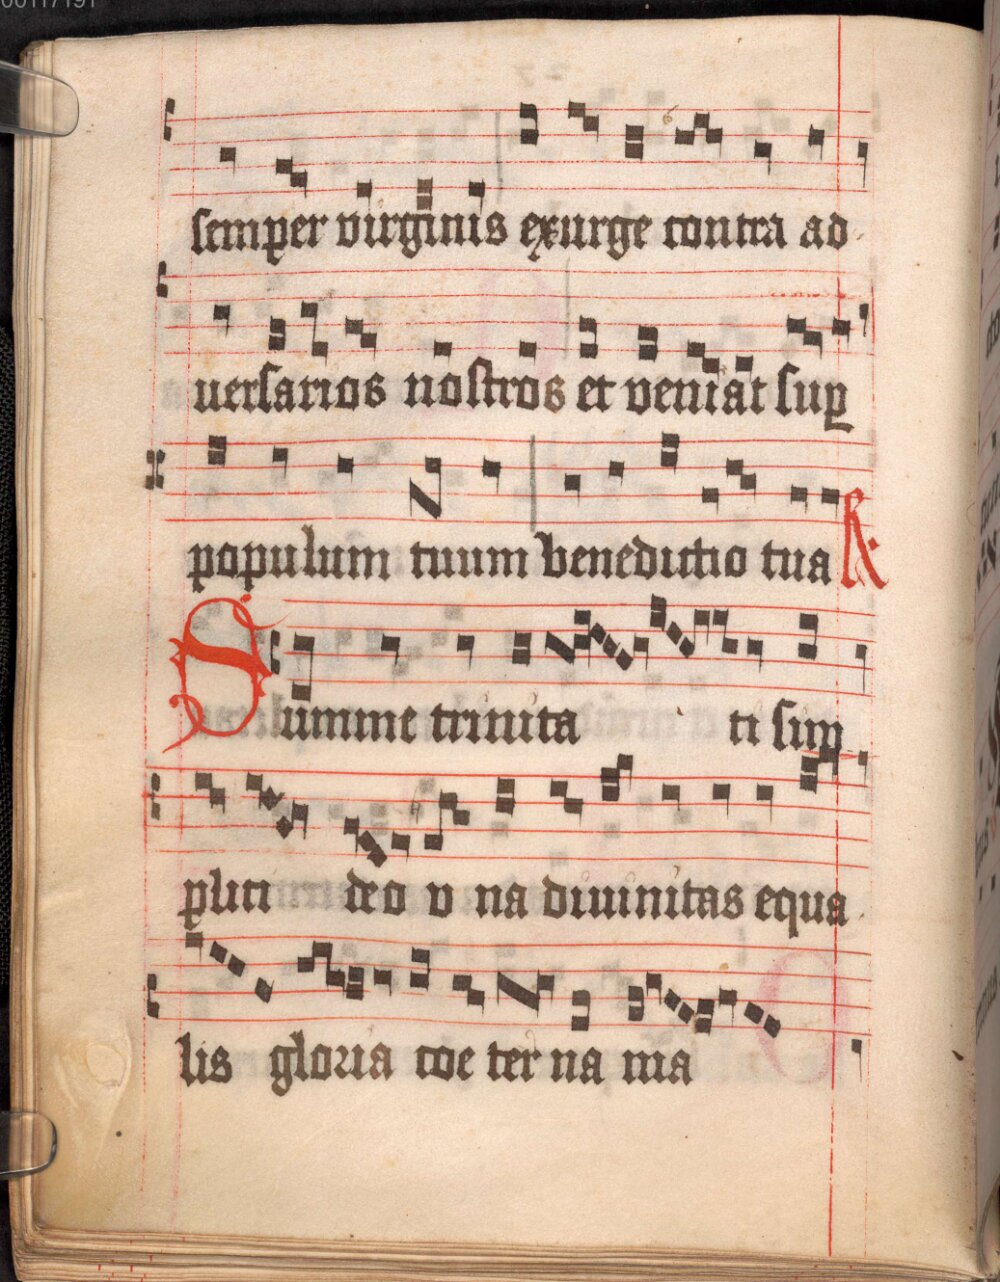 00117191
semper virginis exurge contra ad
uersarios nostros et veniat sup
populum tuum benedictio tua R
Summe trinita ti sup
plici deo v na diuinitas equa
lis gloria coe ter na ma